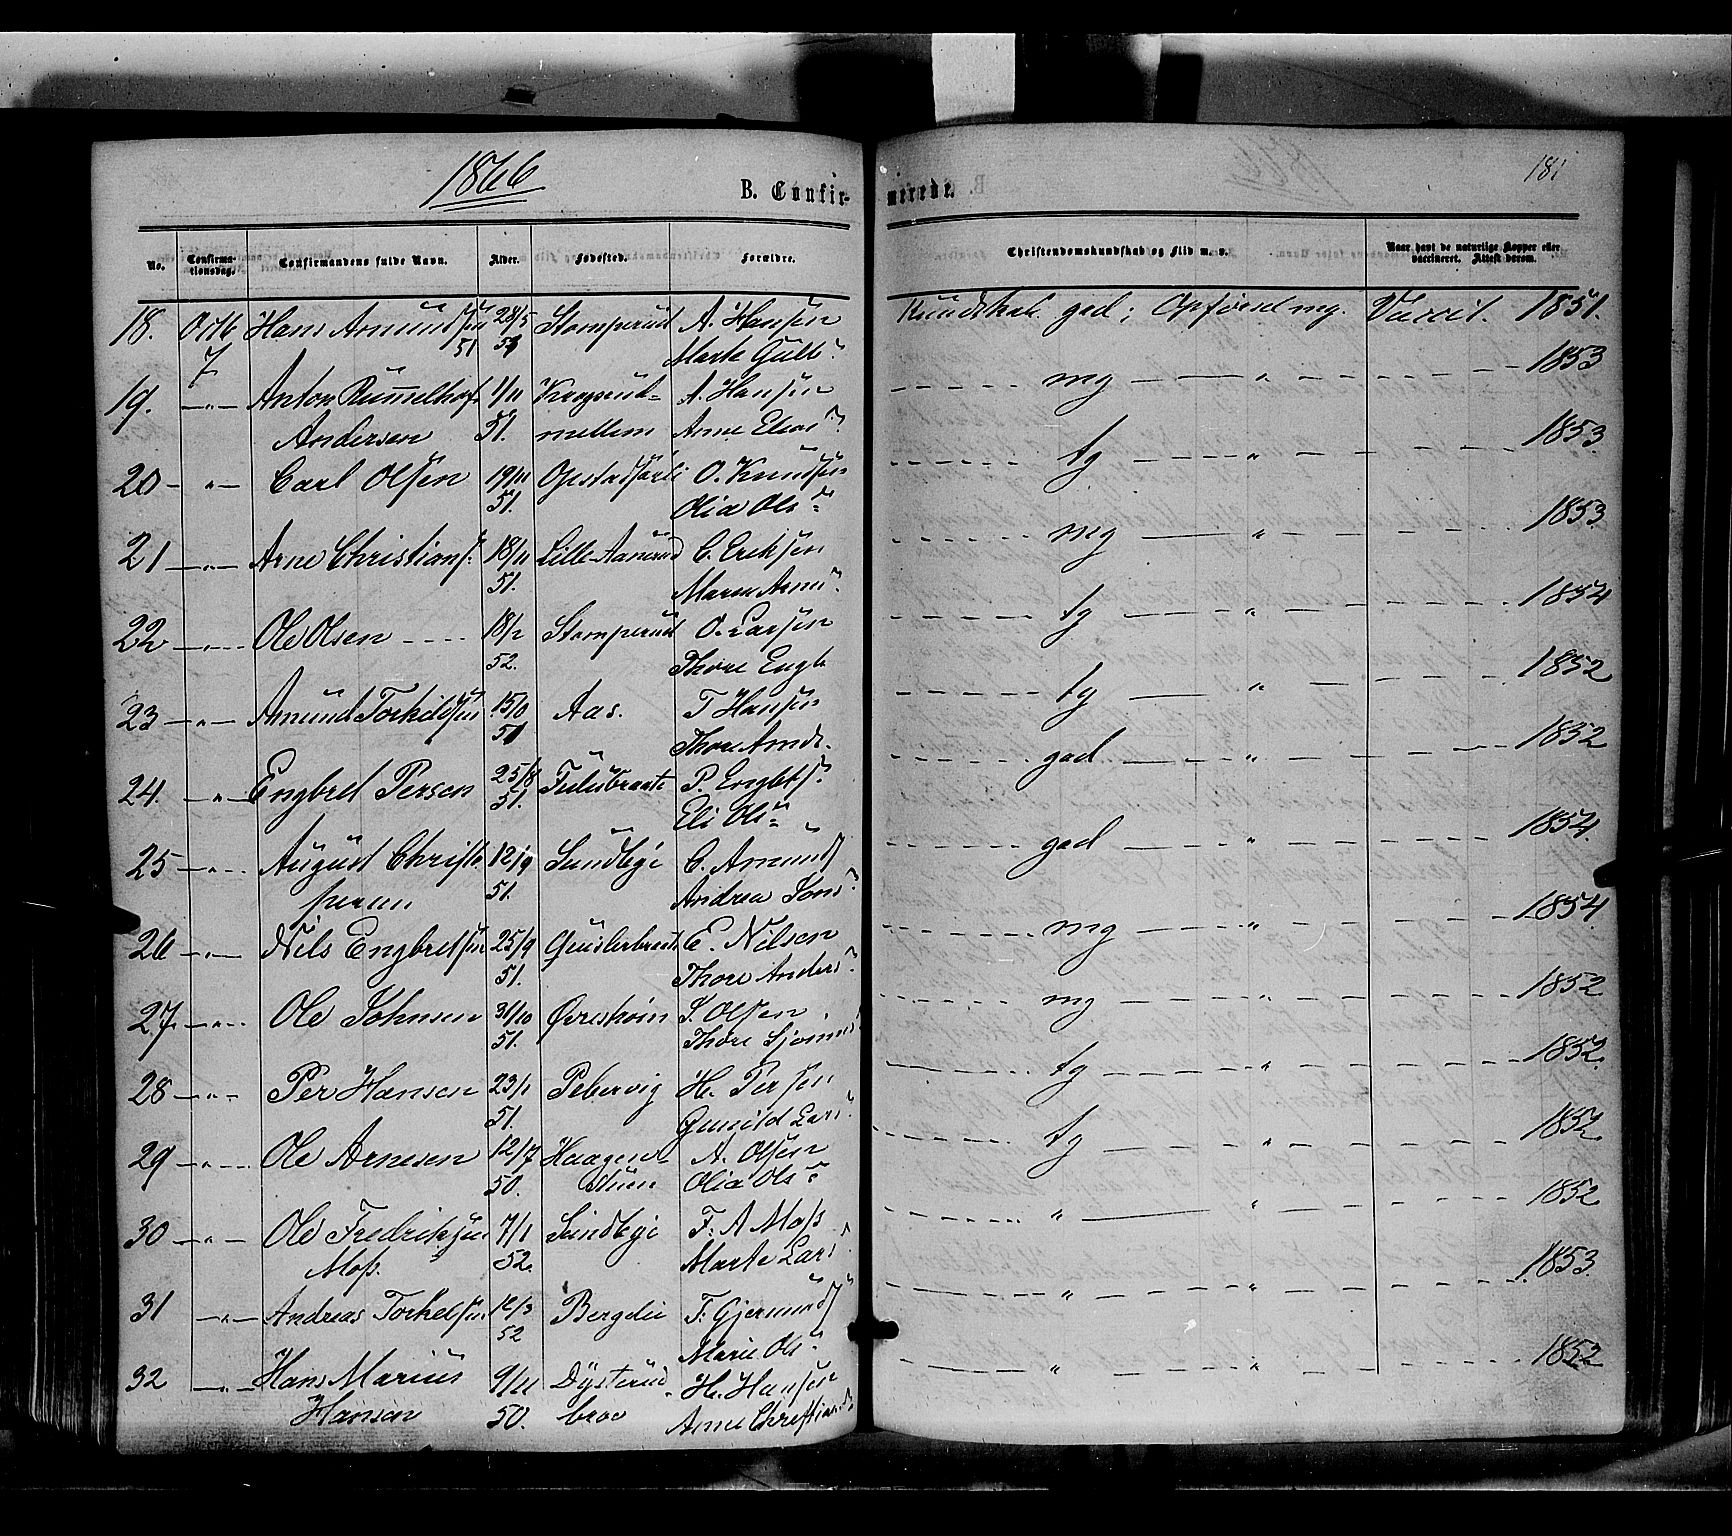 1866
B. Confir-
merede.
181
No.
Confirma-
tionsdag.
Confirmandens fulde Navn.
Alder.
Fødested.
Forældre.
Christendomskundskab og Flid m. v.
Naar havt de naturlige Kopper eller
vaccineret. Attest derom.
18. Octb Hans Amundsen 28/5 Stomperud A. Hansen Kundskab god; Opførsel mg. Vaccit. 1851.
7 51 Marte Gulb
19. Anton Rummelhof 1/11 A. Hansen mg 1853
Andersen 51. mellem Anne Elias
20 Carl Olsen 19/11 O. Knudsen tg 1853
51. Olia Ols
21 Arne Christians. 18/11 Lille-Aanerud C. Eriksen mg 1853
51. Maren Arne
22 Ole Olsen 18/2 Stomperud O. Larsen tg 1854
52. Thore Engb
23 Amund Torkildsen 15/10 Aas. T Hansen tg 1852
51 Thore Amds.
24. Engbret Persen 25/8 P. Engbts. god 1852
51. Eli Ols
25 August Christo 12/9 Sundbye C. Amunds god 1854.
phersen 51. Andrea Jons
26 Nils Engbretsen 25/9 E. Nilsen mg 1854
51. Thore Anders
27. Ole Johnsen 31/10 J. Olsen mg 1852
51. Thore
28 Per Hansen 23/1 Pebervig H. Persen tg 1852.
51. Gunild Lars
29 Ole Arnesen 12/7 Haagen A. Olsen tg 1852.
50. stuen Olia Ols
30 Ole Fredriksen 7/1 Sundbye F. A Moss " 1852
Moss. 52. Marte Lars
31 Andreas Torkelsen 12/3 T. Gjermunds " 1853.
52 Marie Ols
32 Hans Marius 9/11 Dysterud H. Hansen " 1852
Hansen 50. broe Anne Christians